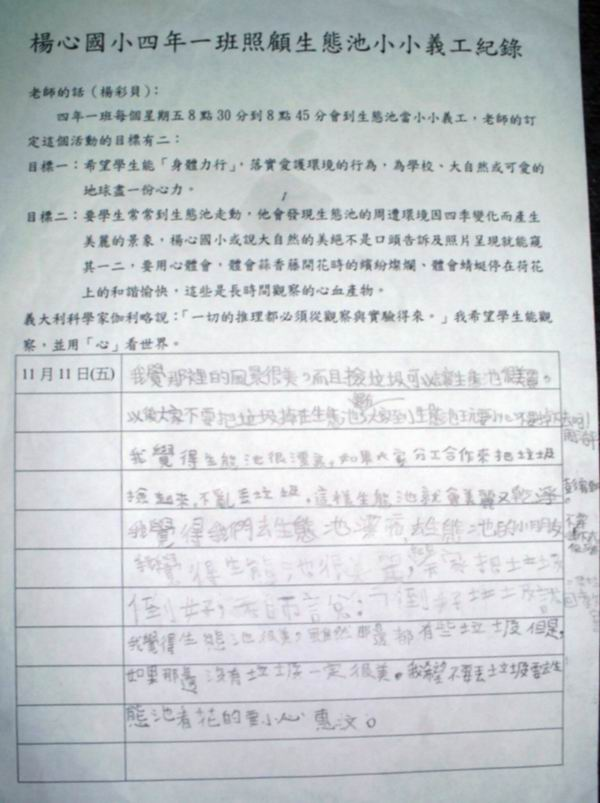 楊心國小四年一班照顧生態池小小義工紀錄
老師的話（楊彩貝）：
四年一班每個星期五8點30分到8點45分會到生態池當小小義工，老師的訂
定這個活動的目標有二：
目標一：希望學生能「身體力行」，落實愛護環境的行為，為學校、大自然或可愛的
地球盡一份心力。
目標二：要學生常常到生態池走動，他會發現生態池的周遭環境因四季變化而產生
美麗的景象，楊心國小或說大自然的美絕不是口頭告訴及照片呈現就能窺
其一二，要用心體會，體會蒜香藤開花時的繽紛燦爛、體會蜻蜓停在荷花
上的和諧愉快，這些是長時間觀察的心血產物。
義大利科學家伽利略說：「一切的推理都必須從觀察與實驗得來。」我希望學生能觀
察，並用「心」看世界。
11月11日(五)
我覺那裡的風景很美，而且撿垃圾可以讓生態池很美麗。
以後大家不要把垃圾掉在生態池，大家到生態池玩要小心不要掉下去啊！
我覺得生態池很漂亮，如果大家分工合作來把垃圾
撿起來，不亂丟垃圾，這樣生態池就會美麗又乾淨。
我覺得我們去生態池
我覺得生態池很美麗，大家把垃圾
倒好，
我覺得生態池很美，雖然那邊都有些垃圾但是，
如果那邊沒有垃圾一定很美。我希望不要丟垃圾要去生
態池看花的要小心 惠汶。